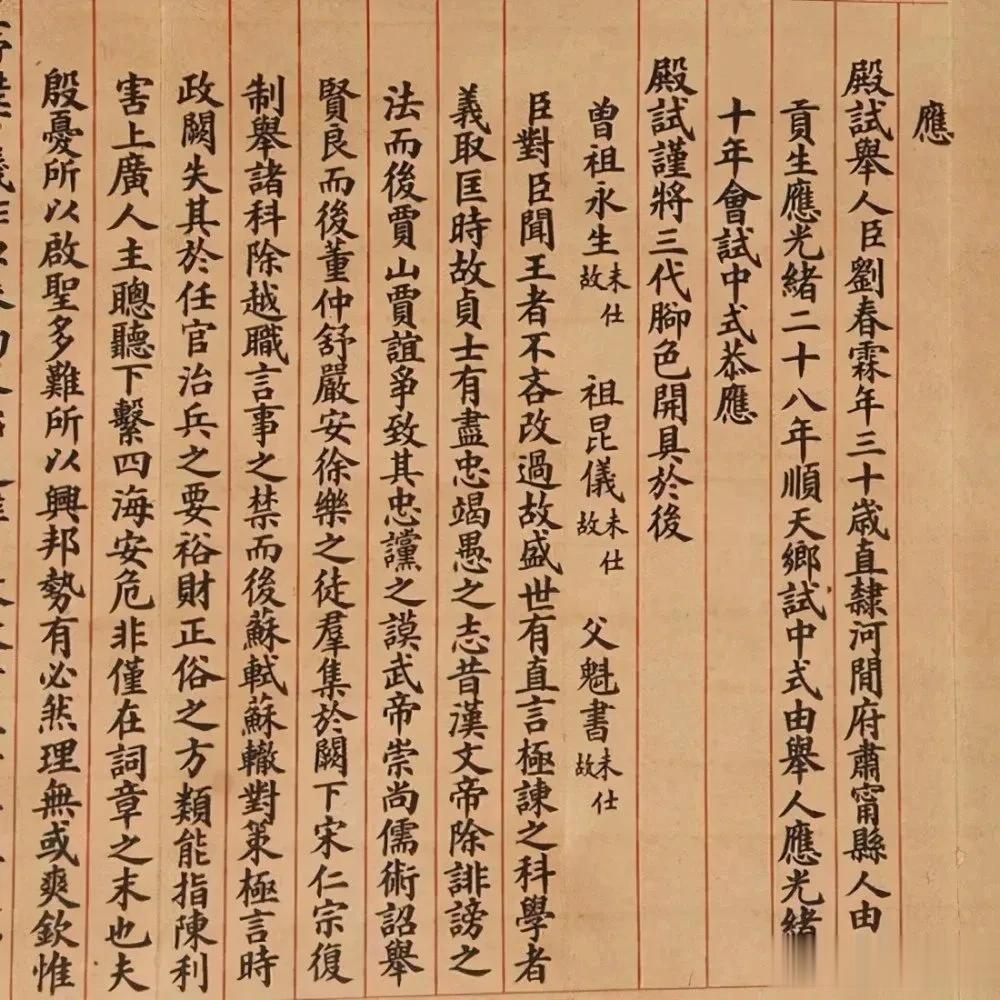 應
殿試舉人臣劉春霖年三十歲直隸河間府肅甯縣人由
貢生應光緒二十八年順天鄉試中式由舉人應光緒
十年會試中式恭應
殿試謹將三代腳色開具於後
曾祖永生未仕故 祖昆儀未仕故 父魁書未仕故
臣對臣聞王者不吝改過故盛世有直言極諫之科學者
義取匡時故貞士有盡忠竭愚之志昔漢文帝除誹謗之
法而後賈山賈誼爭致其忠讜之謨武帝崇尚儒術詔舉
賢良而後董仲舒嚴安徐樂之徒羣集於闕下宋仁宗復
制舉諸科除越職言事之禁而後蘇軾蘇轍對策極言時
政闕失其於任官治兵之要裕財正俗之方類能指陳利
害上廣人主聰聽下繫四海安危非僅在詞章之末也夫
殷憂所以啟聖多難所以興邦勢有必然理無或爽欽惟